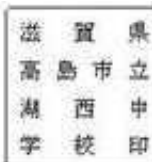 滋賀県
高島市立
湖西中
学校印